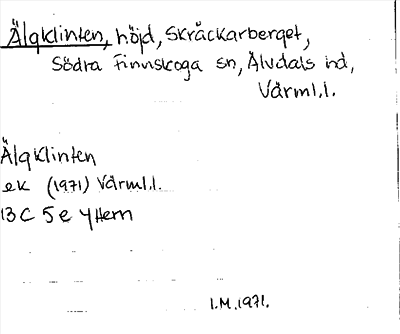 Älgklinten, höjd, Skråckarberget,
Södra Finnskoga sn, Älvdals hd,
Värml.l.
Älgklinten
ek (1971) Värml.l.
13 C 5 e y Hem
I.M. 1971.